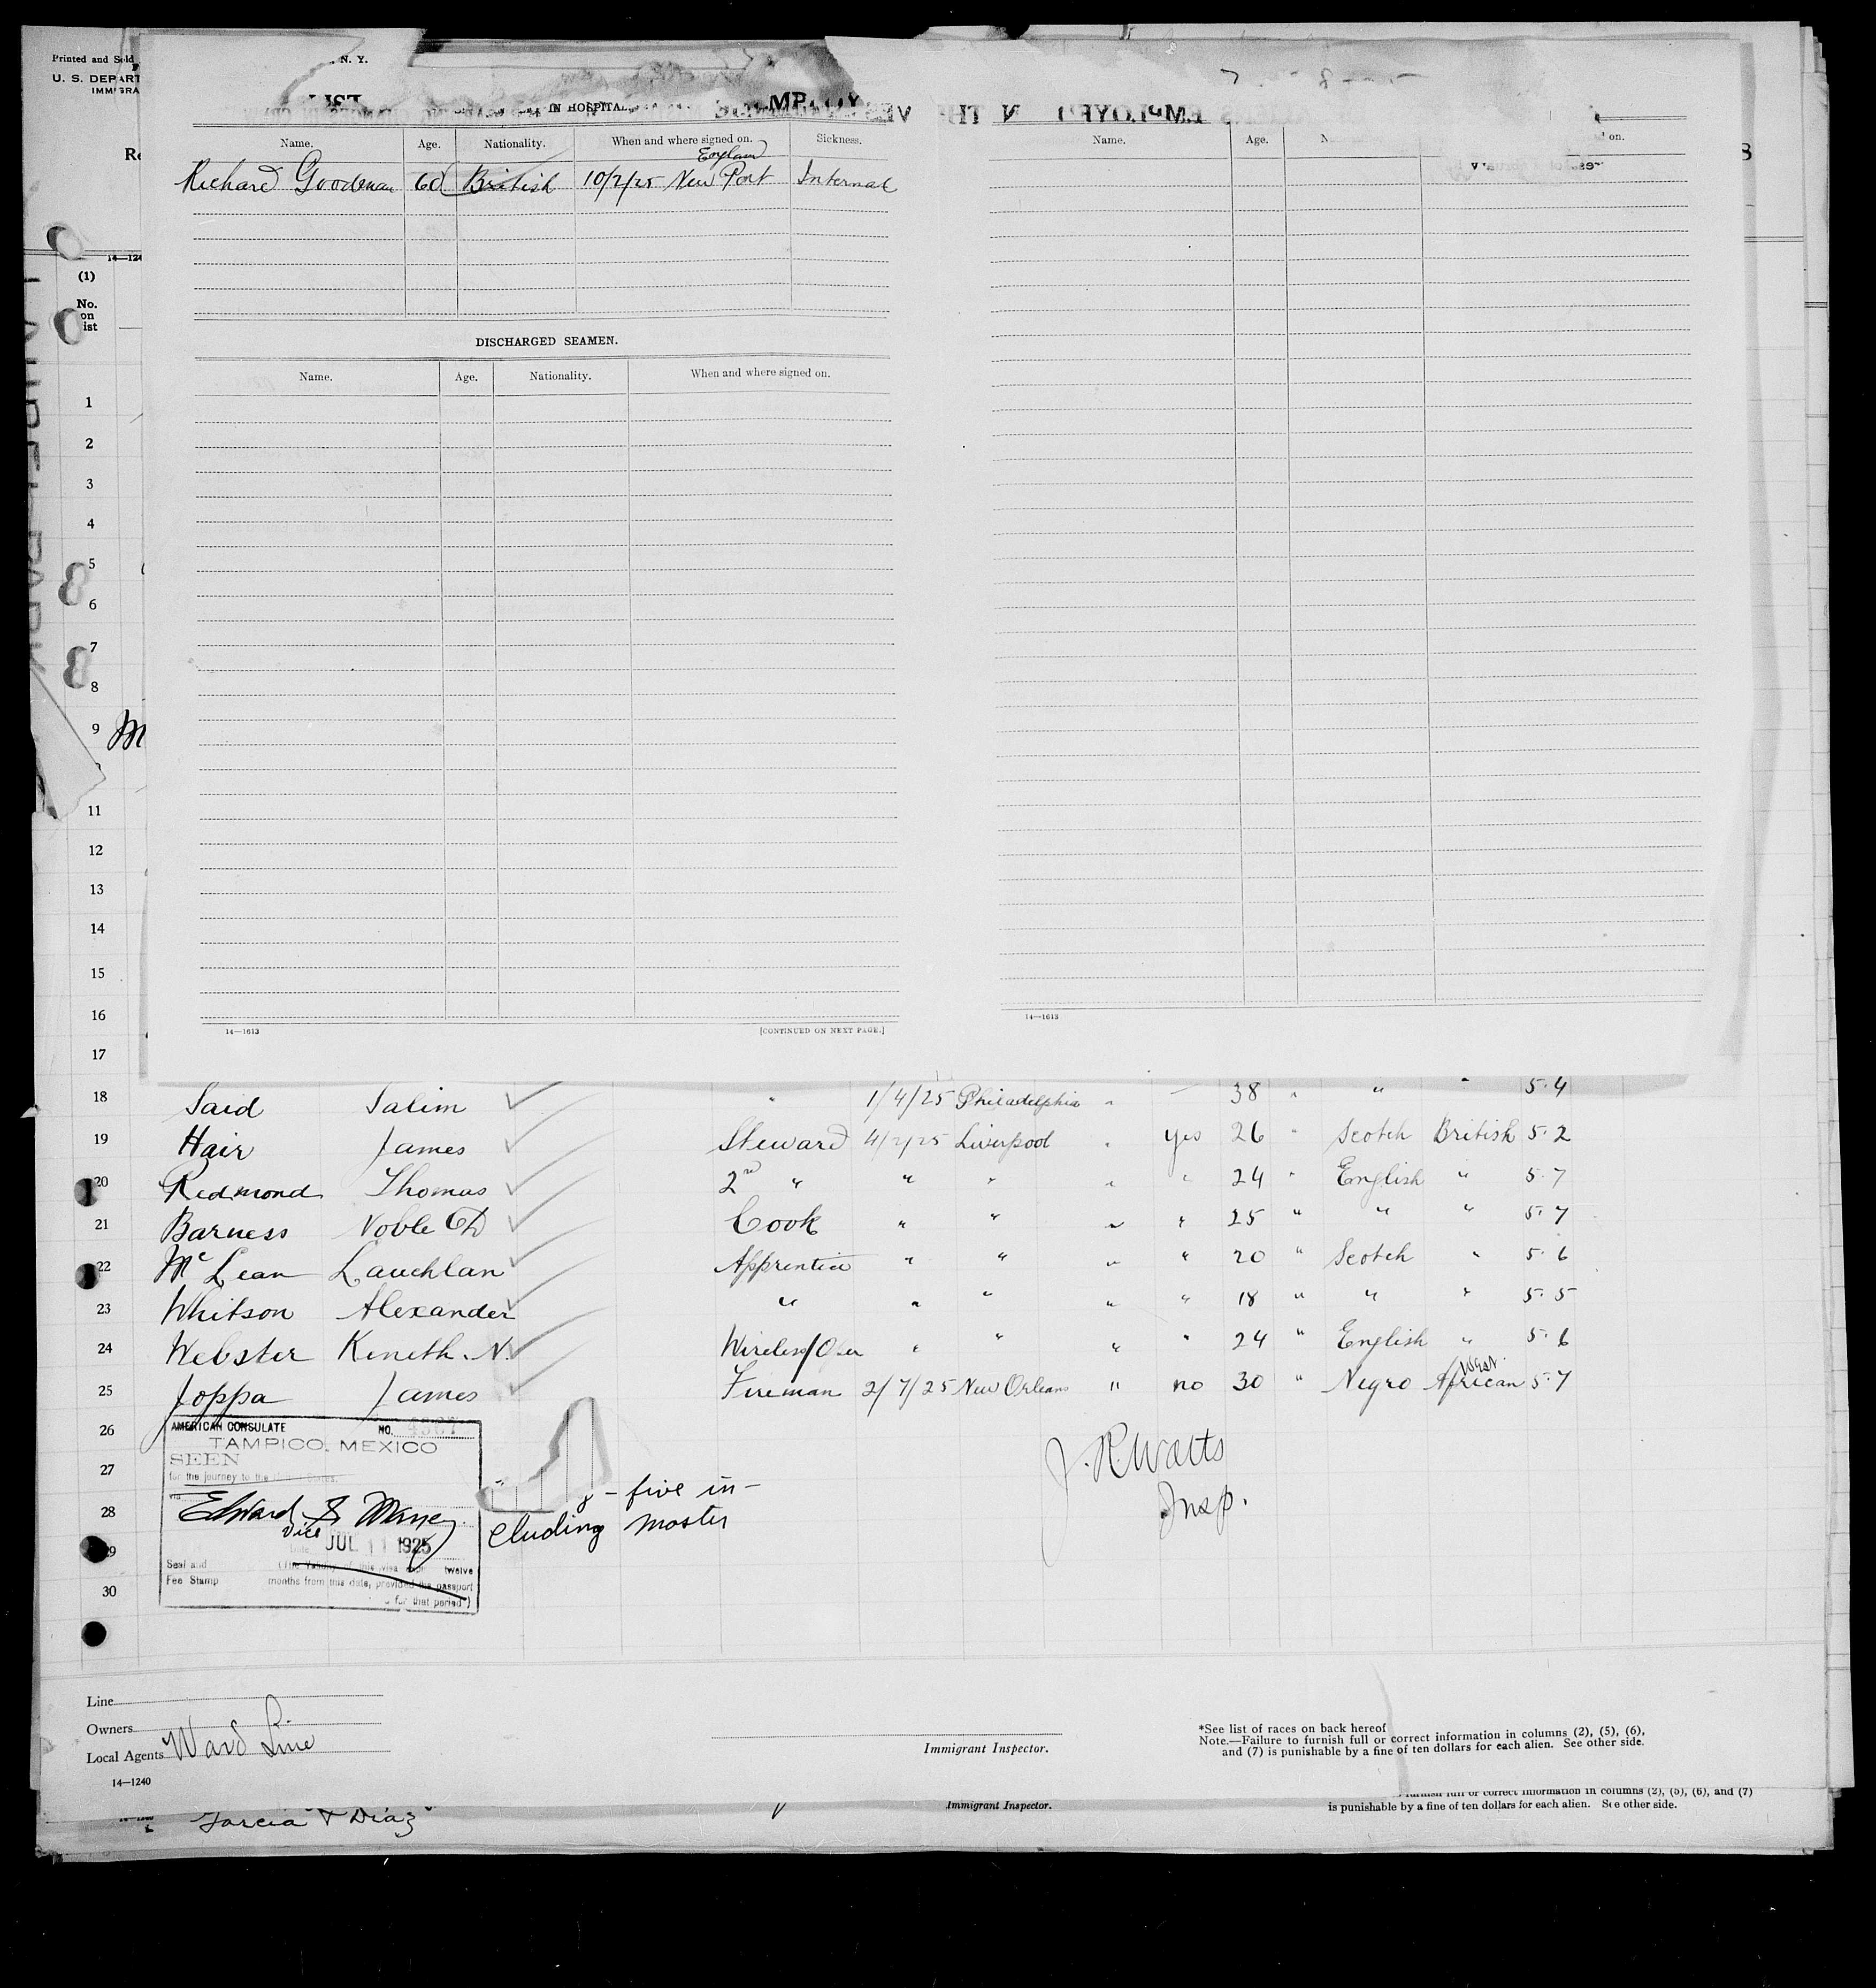 Printed and Sold N. Y.
U. S. DEPART
IMMIGRA
LIST
IN HOSPITAL
Name. Age. Nationality. When and where signed on. Sickness.
England
Richard Goodman 60 British 10/2/25 New Port Internal
Name. Age. N on.
DISCHARGED SEAMEN.
Name. Age. Nationality. When and where signed on.
14—1613 [CONTINUED ON NEXT PAGE.]
14—1613
14—124
(1)
No.
on
ist
1
2
3
4
5
6
7
8
9 M
11
12
13
14
15
16
17
18 Said Salim " 1/4/25 Philadelphia " — 38 " " " 5.4
19 Hair James Steward 4/2/25 Liverpool " yes 26 " Scotch British 5.2
20 Redmond Thomas 2nd " " " " " 24 " English " 5.7
21 Barness Noble Cook " " " " 25 " " " 5.7
22 McLean Lauchlan Apprentice " " " " 20 " Scotch " 5.6
23 Whitson Alexander " " " " " 18 " " " 5.5
24 Webster Kineth. N. Wireless " " " " 24 " English " 5.6
25 Joppa James Fireman 2/7/25 New Orleans " no 30 " Negro West African 5.7
26
27
28
29
30
AMERICAN CONSULATE NO.
TAMPICO, MEXICO
SEEN
for the journey to the United States.
via
Edward S Maney
Vice
JUL 11 1925
Seal and twelve
Fee Stamp months from this date, provided the passport
for that period)
- five in-
cluding master
J. R. Watts
Insp.
Line
Owners
Local Agents Ward Line
14—1240
Immigrant Inspector.
*See list of races on back hereof
Note.—Failure to furnish full or correct information in columns (2), (5), (6),
and (7) is punishable by a fine of ten dollars for each alien. See other side.
Garcia & Diaz
Immigrant Inspector.
furnish full or correct information in columns (2), (5), (6), and (7)
is punishable by a fine of ten dollars for each alien. See other side.